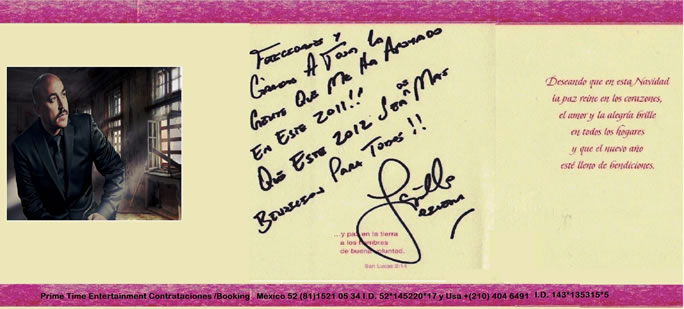 Felicidades y
Gracias A Toda la
Gente Que Me Ha Apoyado
En Este 2011!!
Que Este 2012 Sea de Mas
Bendicion Para Todos!!
Rivera
...y paz en la tierra
a los hombres
de buena voluntad.
San Lucas 2:14
Deseando que en esta Navidad
la paz reine en los corazones,
el amor y la alegría brille
en todos los hogares
y que el nuevo año
esté lleno de bendiciones.
Prime Time Entertainment Contrataciones /Booking México 52 (81)1521 05 34 I.D. 52*145220*17 y Usa +(210) 404 6491 I.D. 143*135315*5